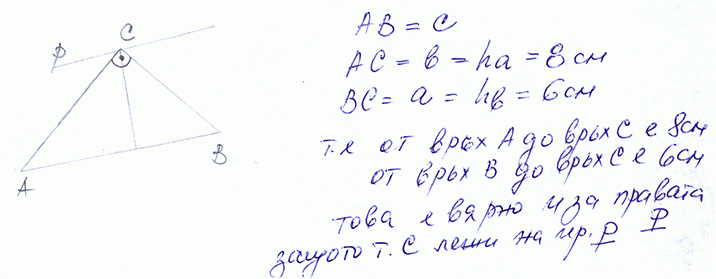 C
P
A
B
AB = c
AC = b = ha = 8 см
BC = a = hb = 6 см
т.е от връх A до връх C е 8 см
от връх B до връх C е 6 см
това е вярно и за правата P
защото т. C лежи на пр. P